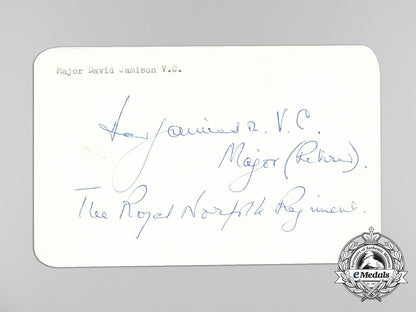 Major David Jamison V.C.
Jamieson. V.C.
Major (Retired).
The Royal Norfolk Regiment.
eMedals